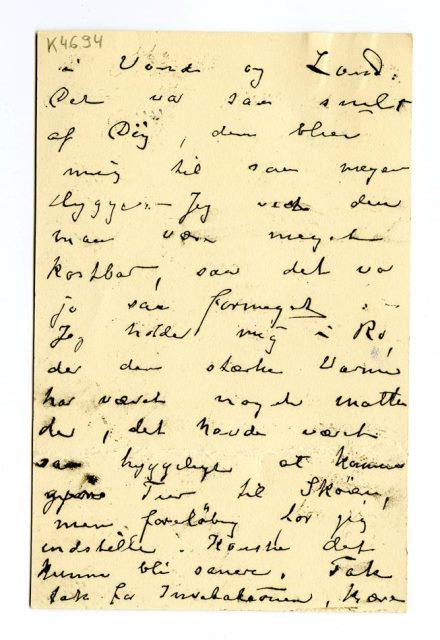 K4694
i Vand og Land.
Det var saa snilt
af Dig, den blev
mig til saa megen
Hygge. – Jeg ved den
maa være meget
kostbar, saa det va
jo saa formeget. –
Jeg holder mig i Ro,
der den stærke Varme
har været noget matten
de, det havde været
saa hyggeligt at komme
Tur til Skoien,
men foreløbig tør jeg
indstille. Kanske det
kunne bli senere. Tak
tak for Invitationen, kære